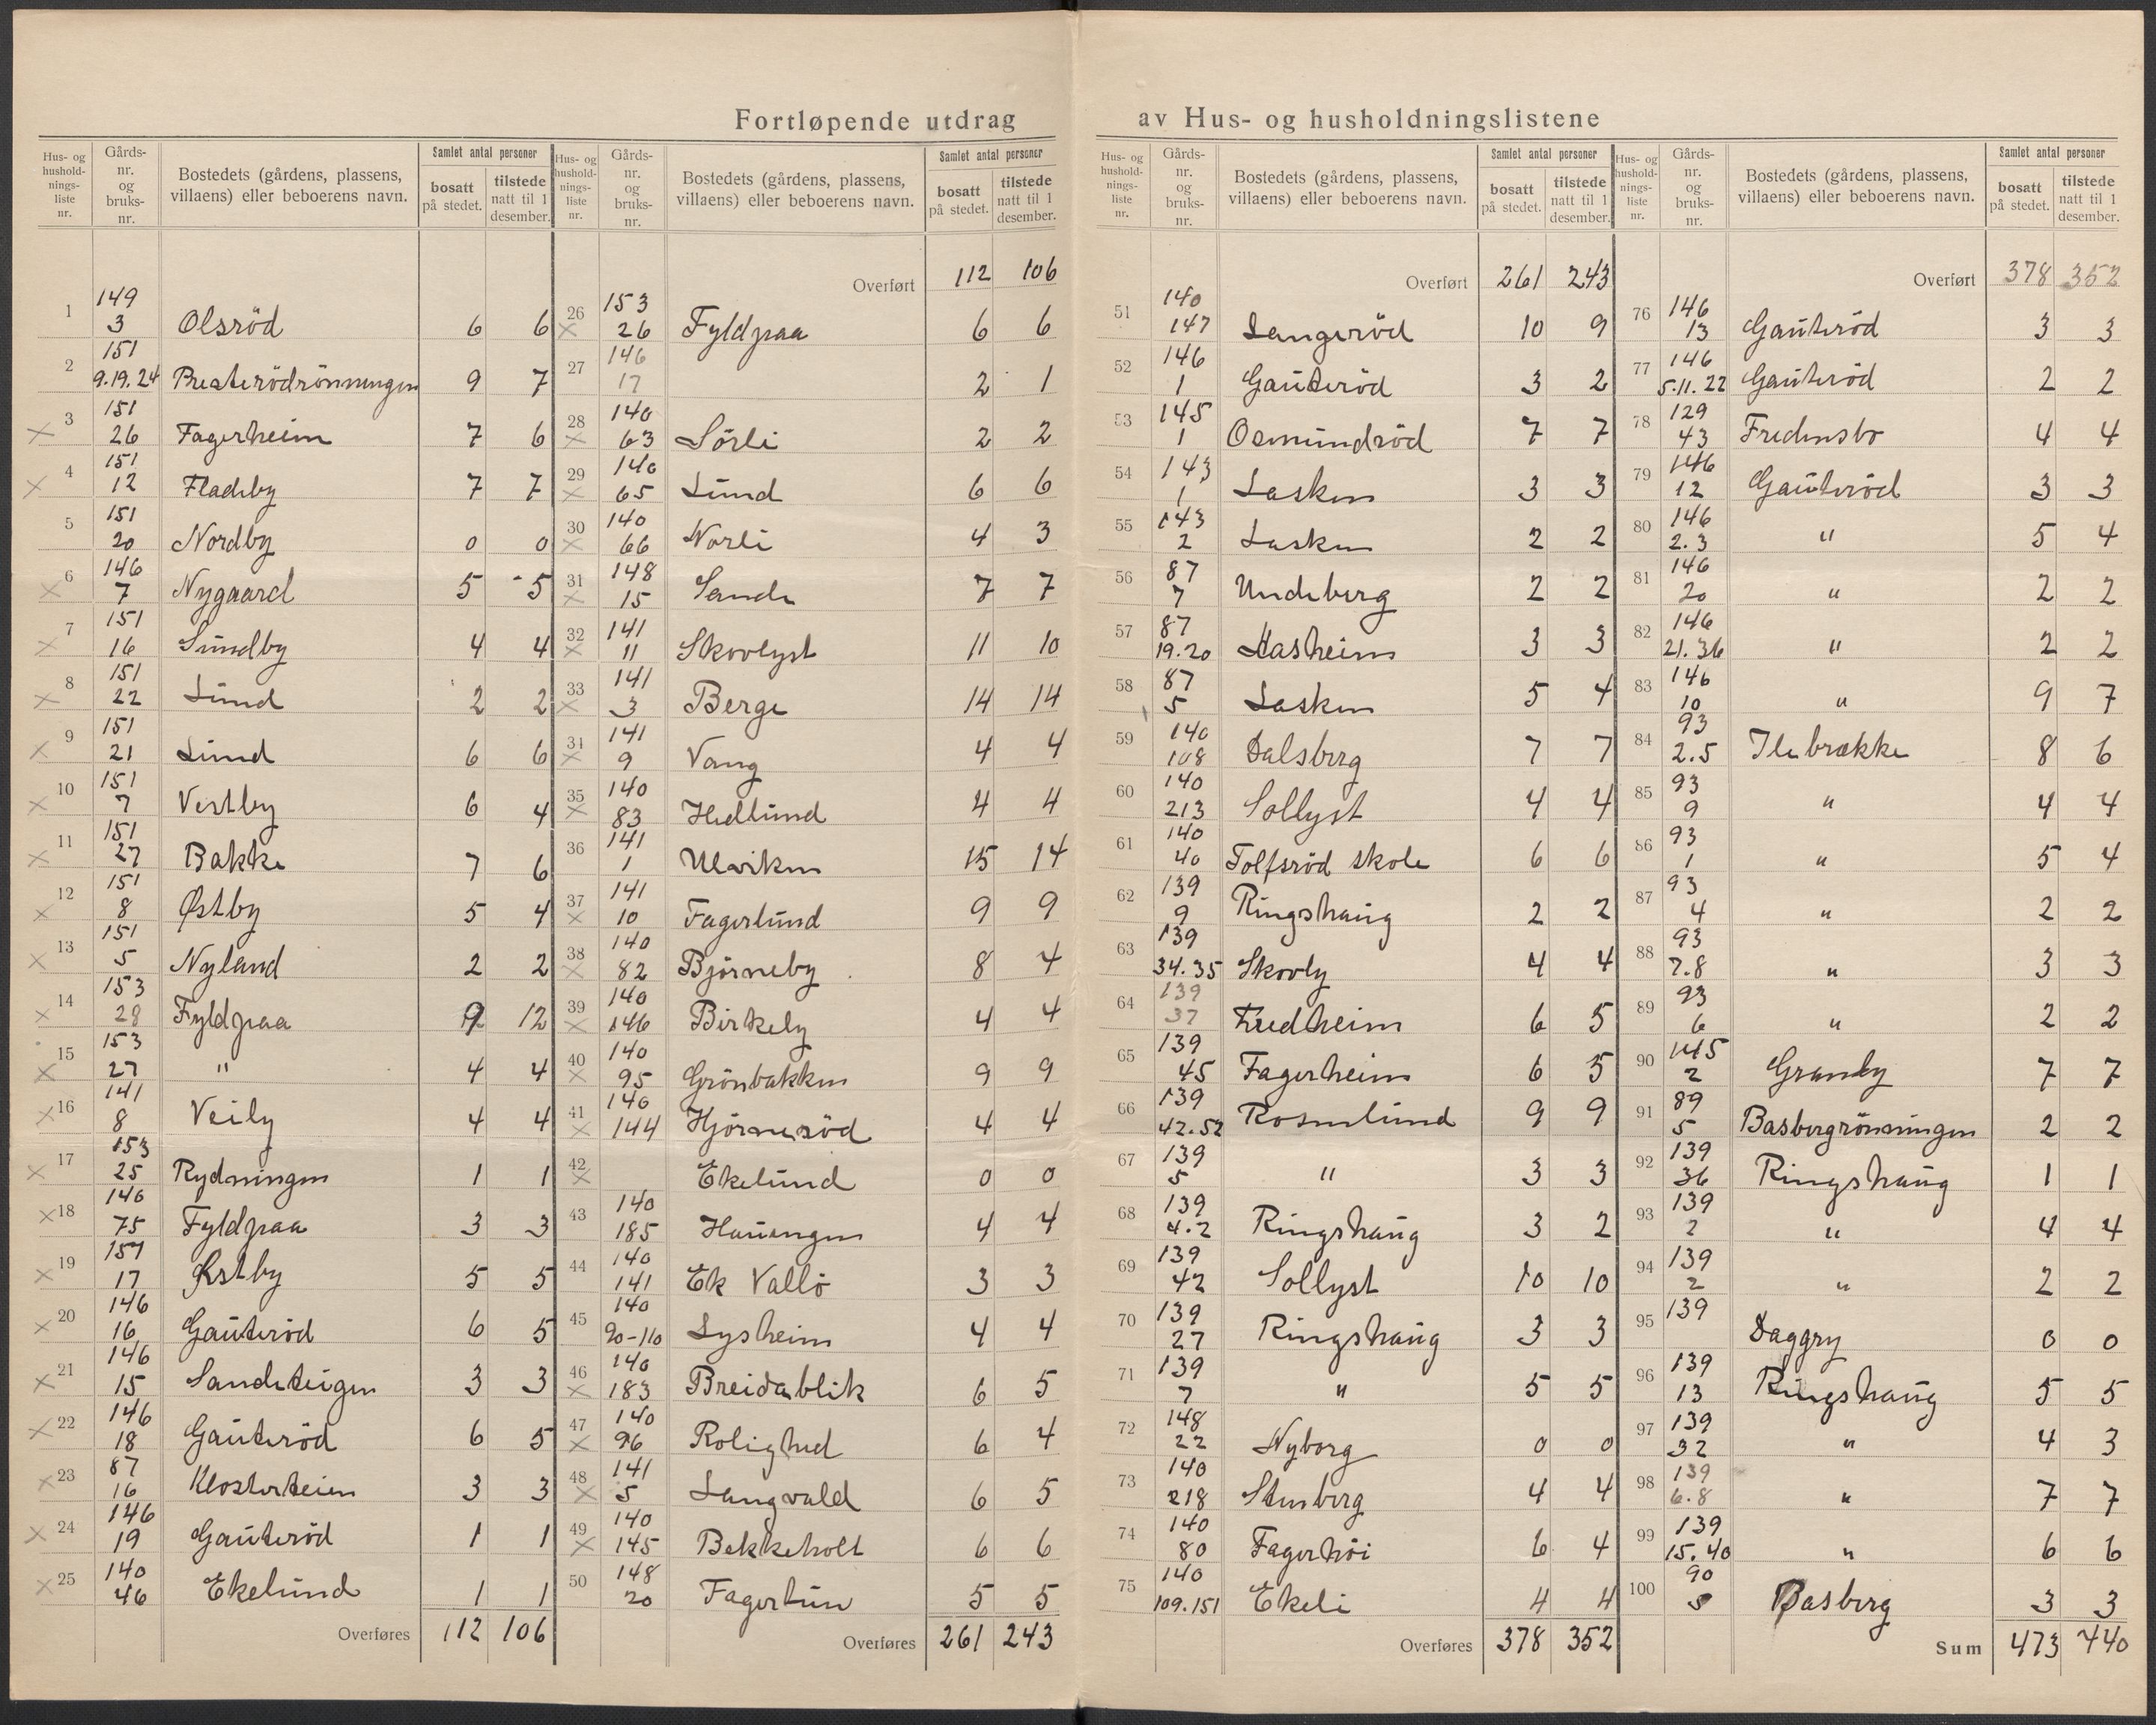 Fortløpende utdrag av Hus- og husholdningslistene
Hus- og hushold-nings-liste nr. Gårds-nr. og bruks-nr. Bostedets (gårdens, plassens, villaens) eller beboerens navn. Samlet antal personer bosatt på stedet. tilstede natt til 1 desember.
1 149 3 Olsröd 6 6
2 151 9.19.24 Presterödrönningen 9 7
× 3 151 26 Fagerheim 7 6
× 4 151 12 Fladeby 7 7
5 151 20 Nordby 0 0
× 6 146 7 Nygaard 5 5
× 7 151 16 Sundby 4 4
× 8 151 22 Lund 2 2
× 9 151 21 Lund 6 6
× 10 151 7 Vestby 6 4
× 11 151 27 Bakke 7 6
× 12 151 8 Østby 5 4
× 13 151 5 Nyland 2 2
× 14 153 28 Fyldpaa 12
× 15 153 27 " 4 4
× 16 141 8 Veily 4 4
× 17 153 25 Rydningen 1 1
× 18 140 75 Fyldpaa 3 3
× 19 151 17 Østby 5 5
× 20 146 16 Gauteröd 6 5
× 21 146 15 Sandeteigen 3 3
× 22 146 18 Gauteröd 6 5
× 23 87 16 Klosterteien 3 3
× 24 146 19 Gauteröd 1 1
× 25 140 46 Ekelund 1 1
Overføres 112 106
Hus- og hushold-nings-liste nr. Gårds-nr. og bruks-nr. Bostedets (gårdens, plassens, villaens) eller beboerens navn. Samlet antal personer bosatt på stedet. tilstede natt til 1 desember.
Overført 112 106
26 × 153 26 Fyldpaa 6 6
27 146 17 2 1
28 × 140 63 Sörli 2 2
29 × 140 65 Lund 6 6
30 × 140 66 Norli 4 3
31 × 148 15 Sande 7 7
32 × 141 11 Skovlyst 11 10
33 × 141 3 Berge 14 14
34 × 141 9 Vang 4 4
35 × 140 83 Hedlund 4 4
36 141 1 Ulviken 15 14
37 × 141 10 Fagerlund 9 9
38 × 140 82 Björneby 8 4
39 × 140 146 Birkely 4 4
40 × 140 95 Grönbakken 9 9
41 × 140 144 Hjörneröd 4 4
42 × Ekelund 0 0
43 140 185 Hauengen 4 4
44 140 141 Ek Vallö 3 3
45 140 90-110 Lysheim 4 4
46 × 140 183 Breidablik 6 5
47 × 140 96 Rolighed 6 4
48 × 141 5 Langvald 6 5
49 × 140 145 Bekkeholt 6 6
50 148 20 Fagertun 5 5
Overføres 261 243
Hus- og hushold-nings-liste nr. Gårds-nr. og bruks-nr. Bostedets (gårdens, plassens, villaens) eller beboerens navn. Samlet antal personer bosatt på stedet. tilstede natt til 1 desember.
Overført 261 243
51 140 147 Langeröd 10 9
52 146 1 Gauteröd 3 2
53 145 1 Osmundröd 7 7
54 143 1 Lasken 3 3
55 143 2 Lasken 2 2
56 87 7 Undeberg 2 2
57 87 19.20 Aasheim 3 3
58 87 5 Lasken 5 4
59 140 108 Dalsberg 7 7
60 140 213 Sollyst 4 4
61 140 40 Tolfsröd skole 6 6
62 139 9 Ringshaug 2 2
63 139 34.35 Skovly 4 4
64 139 37 Fredheim 6 5
65 139 45 Fagerheim 6 5
66 139 42.52 Rosenlund 9 9
67 139 5 " 3 3
68 139 4.2 Ringshaug 3 2
69 139 42 Sollyst 10 10
70 139 27 Ringshaug 3 3
71 139 7 " 5 5
72 148 22 Nyborg 0 0
73 140 218 Stensberg 4 4
74 140 80 Fagerhöi 6 4
75 140 109.151 Ekeli 4 4
Overføres 378 352
Hus- og hushold-nings-liste nr. Gårds-nr. og bruks-nr. Bostedets (gårdens, plassens, villaens) eller beboerens navn. Samlet antal personer bosatt på stedet. tilstede natt til 1 desember.
Overført 378 352
76 146 13 Gauteröd 3 3
77 146 5.11.22 Gauteröd 2 2
78 129 43 Fredensbo 4 4
79 146 12 Gauteröd 3 3
80 146 2.3 " 5 4
81 146 20 " 2 2
82 146 21.36 " 2 2
83 146 10 " 9 7
84 93 2.5 Ilebrække 8 6
85 93 9 " 4 4
86 93 1 " 5 4
87 93 4 " 2 2
88 93 7.8 " 3 3
89 93 6 " 2 2
90 145 2 Granby 7 7
91 89 5 Basbergrönningen 2 2
92 139 36 Ringshaug 1 1
93 139 2 " 4 4
94 139 2 " 2 2
95 139 Daggry 0 0
96 139 13 Ringshaug 5 5
97 139 32 " 4 3
98 139 6.8 " 7 7
99 139 15.40 " 6 6
100 90 5 Basberg 3 3
Sum 473 440